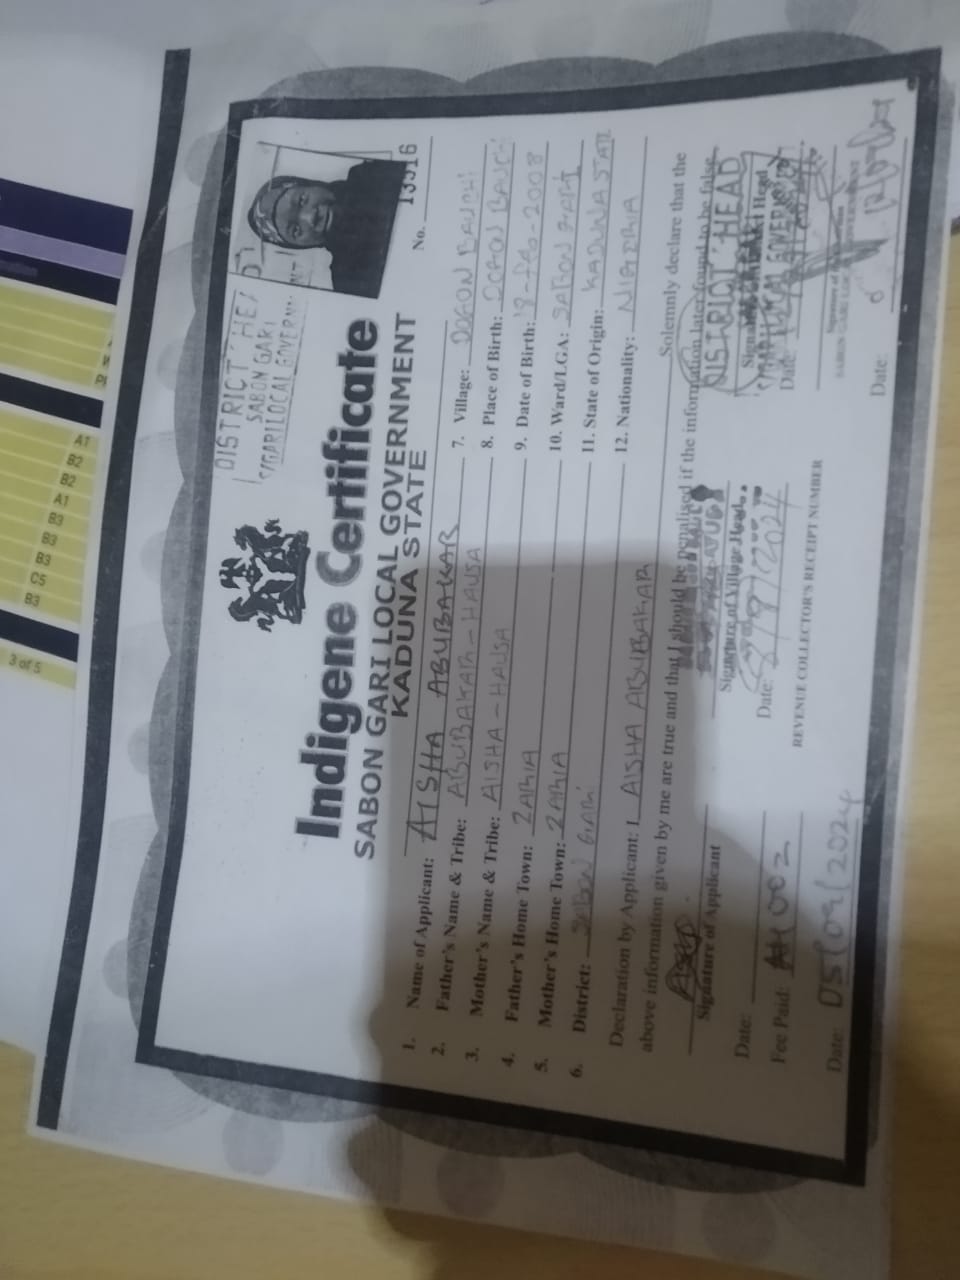 DISTRICT HEA
SABON GARI
S/GARI LOCAL GOVERNM
Indigene Certificate
SABON GARI LOCAL GOVERNMENT
KADUNA STATE
No. 13516
1. Name of Applicant: AISHA ABUBAKAR
2. Father's Name & Tribe: ABUBAKAR - HAUSA
3. Mother's Name & Tribe: AISHA - HAUSA
4. Father's Home Town: ZARIA
5. Mother's Home Town: ZARIA
6. District: SABON GARI
7. Village: DOGON BAUCHI
8. Place of Birth: DOGON BAUCHI
9. Date of Birth:
10. Ward/LGA: SABON GARI
11. State of Origin: KADUNA STATE
12. Nationality: NIGERIA
Declaration by Applicant: I AISHA ABUBAKAR Solemnly declare that the
above information given by me are true and that I should be penalised if the information later found to be false.
Signature of Applicant
Date:
Fee Paid:
Date: 05/09/2024
Signature of Village Head
Date:
REVENUE COLLECTOR'S RECEIPT NUMBER
DISTRICT HEAD
Date:
Date:
A1
B2
B2
A1
B3
B3
B3
C5
B3
3 of 5